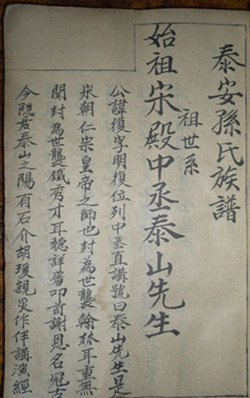 泰安孫氏族譜
祖世系
始祖宋殿中丞泰山先生
公諱復字明復位列中丞直講號曰泰山先生是
宋朝仁宗皇帝之師也封為世襲翰林耳重無
聞封為世襲鐵秀才耳聽詳審叩首謝恩名冠古
今院居泰山之陽有石介胡瑗親炙作伴講演經